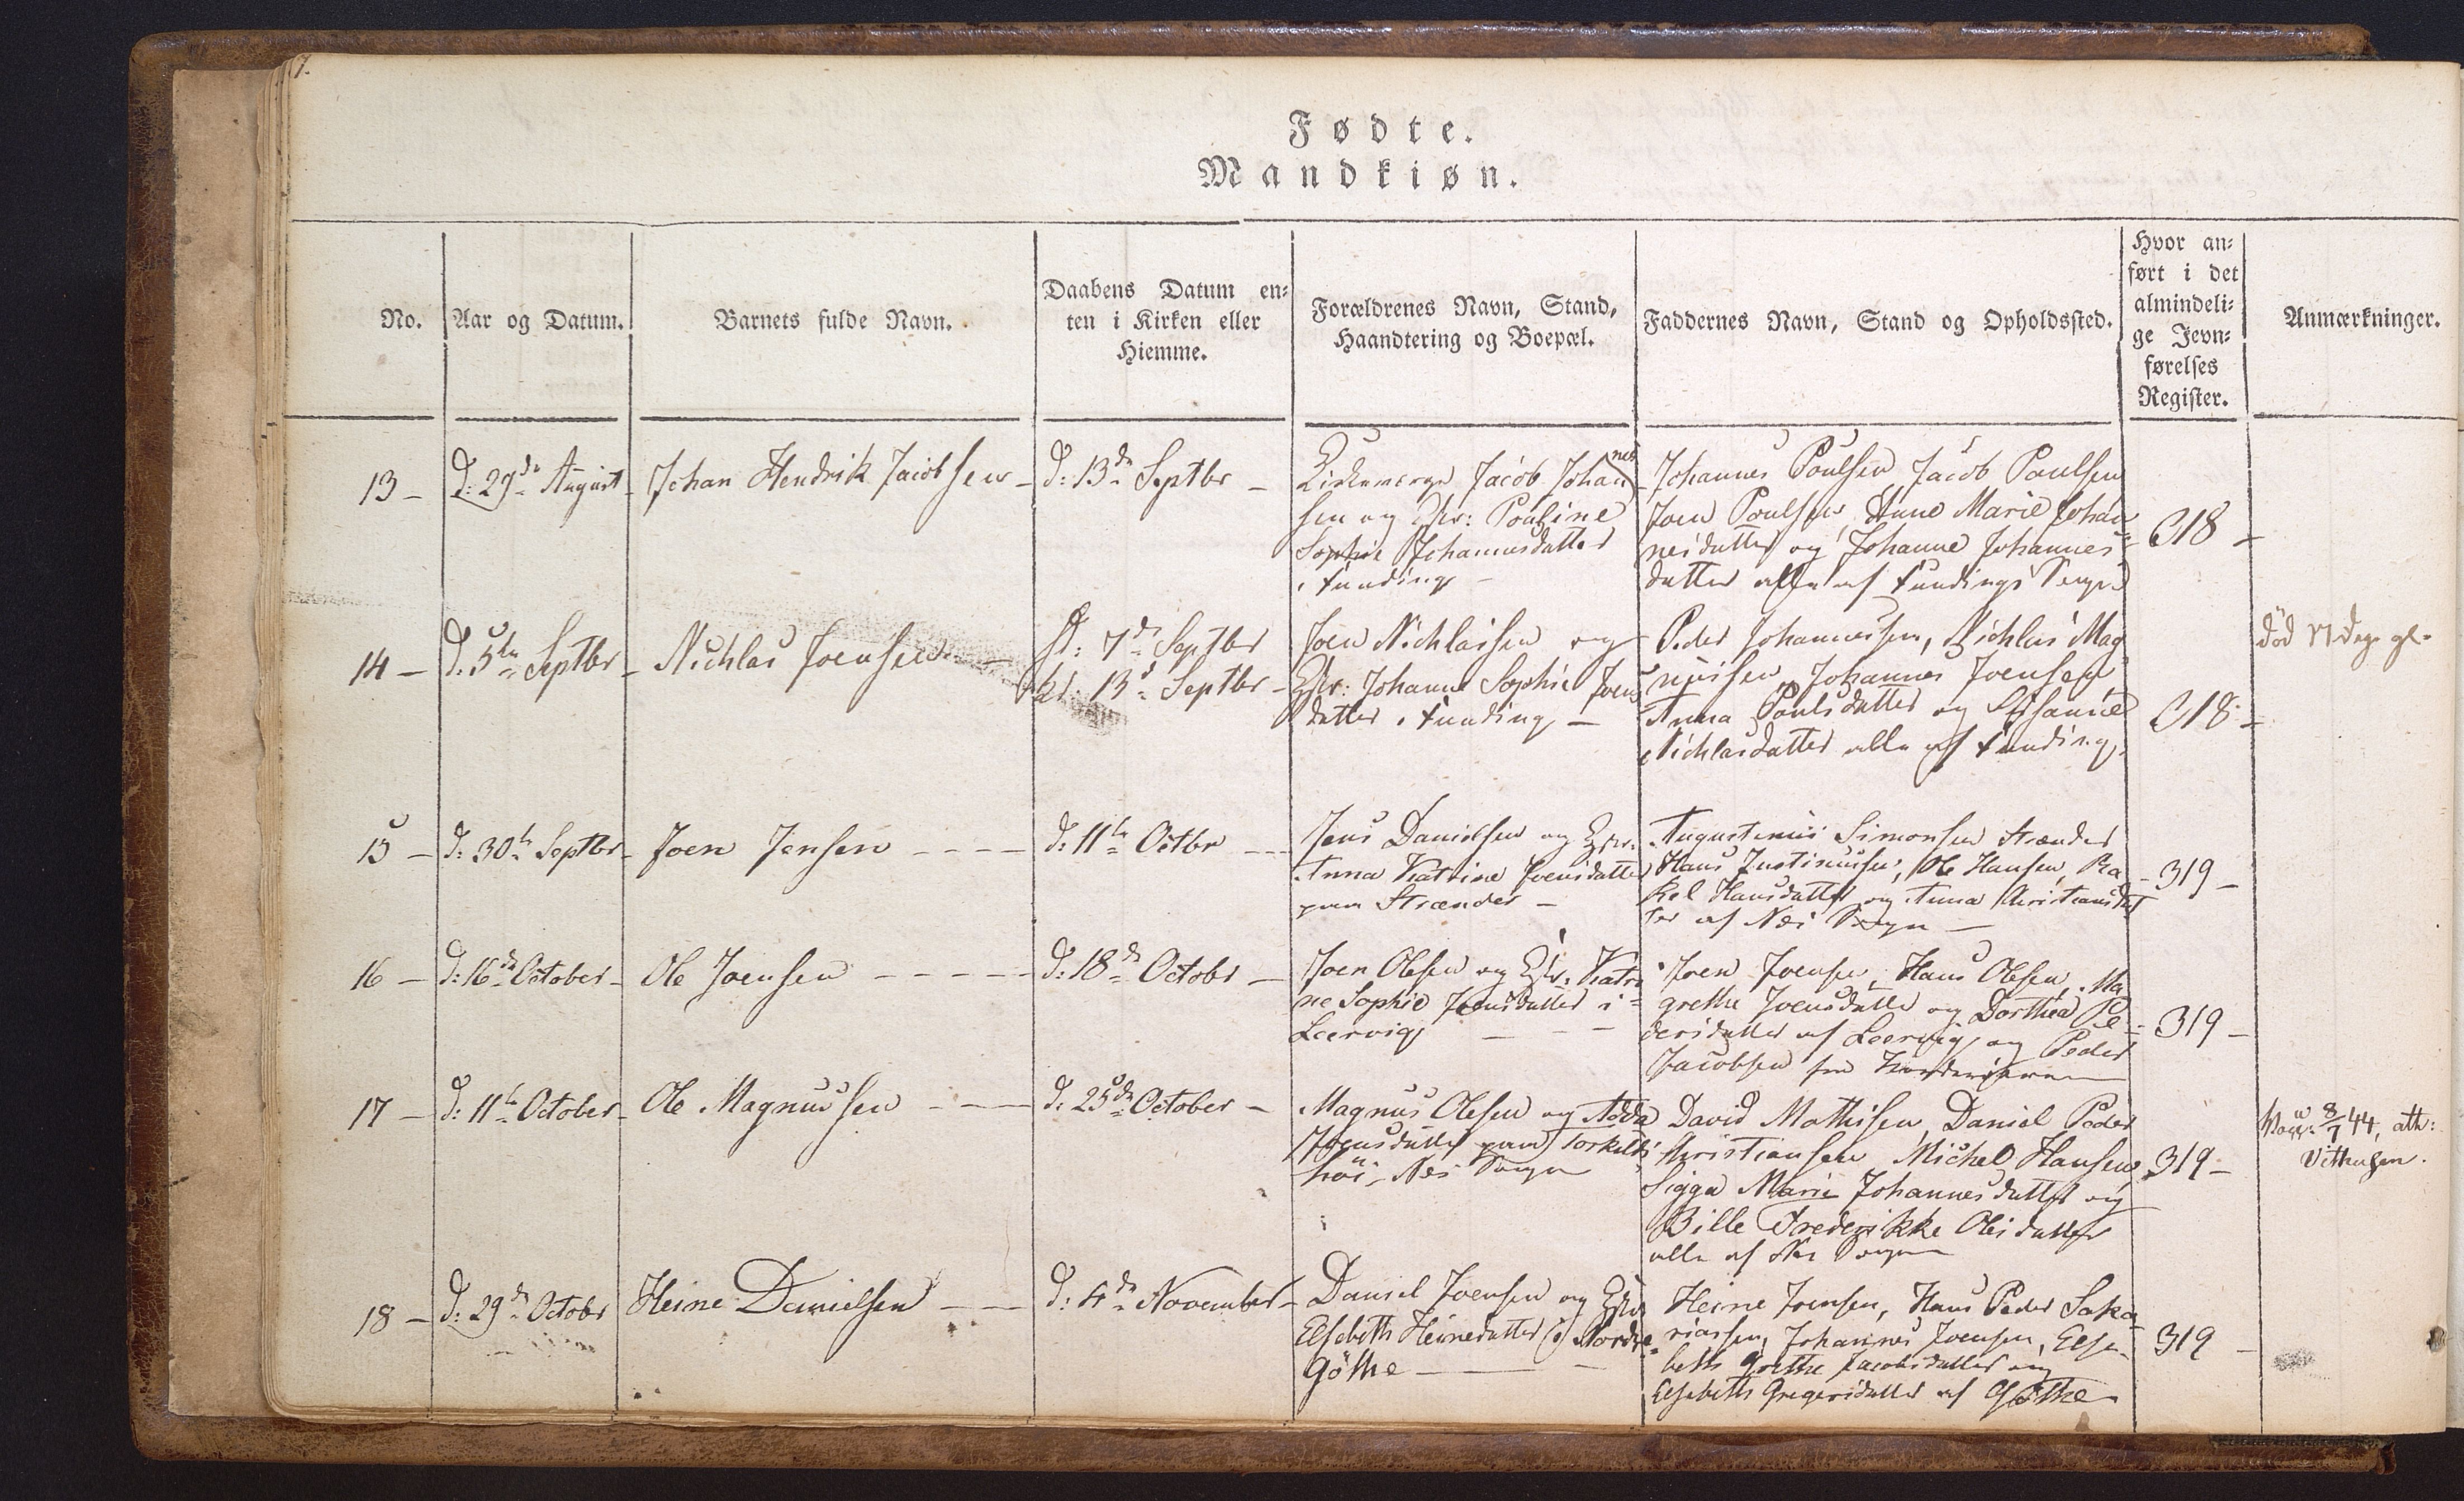 7.
Fødte.
Mandkiøn.
No.
Aar og Datum.
Barnets fulde Navn.
Daabens Datum en-
ten i Kirken eller
Hiemme.
Forældrenes Navn, Stand,
Haandtering og Boepæl.
Faddernes Navn, Stand og Opholdssted.
Hvor an-
ført i det
almindeli-
ge Jevn-
førelses
Register.
Anmærkninger.
13 -
d: 29de August -
Johan Hendrik Jacobsen -
d: 13de Septbr -
Kirkeverge Jacob Johannes
sen og Hstr: Pouline
Sophie Johannesdatter
i Funding -
Johannes Poulsen, Jacob Poulsen
Joen Poulsen, Anne Marie Johan
nesdatter og Johanne Johannes
datter alle af Fundings Sogn
318 -
14 -
d: 5te Septbr -
Nichlas Joensen -
d: 7de Septbr
13d Septbr -
Joen Nichlassen og
Hstr: Johanne Sophie Joens
datter i Funding -
Peder Johannessen, Nichlas Mag
nussen, Johannes Joensen
Anna Poulsdatter og Susanne
Nichlasdatter alle af Funding.
318 -
død 17 dage gl.
15 -
d: 30te Septbr -
Joen Jensen - - - -
d: 11te Octbr - -
Jens Danielsen og Hstr:
Anna Katrine Joensdatter
paa Strænder -
Augustinus Simonsen Strænder
Hans Justinussen, Ole Hansen, Ra
kel Hansdatter og Anna Christiansdat
ter af Næs Sogn -
319 -
16 -
d: 16de October -
Ole Joensen - - - - -
d: 18de Octobr -
Joen Olesen og Hstr: Katri
ne Sophie Joensdatter i
Leervig - - -
Joen Joensen, Hans Olesen, Ma
grethe Joensdatter og Dorthea Pe
dersdatter af Leervig, og Peder
Jacobsen fra
319 -
17 -
d: 11te October -
Ole Magnussen - - -
d: 25de October -
Magnus Olesen og Adda
Joensdatter paa Torkels
høi, Næs Sogn
David Mathisen, Daniel Peder
Christiansen Michel Hansen
Sigga Marie Johannesdatter og
Bille Frederikke Olesdatter
alle af Næs Sogn
319 -
Vacc: 8/7 44, att:
18 -
d: 29de Octobr
Heine Danielsen - -
d: 4de November -
Daniel Joensen og Hstr
Elsebeth Heinedatter i Nordre
Göthe -
Heine Joensen, Hans Peder Saka
riassen, Johannes Joensen, Else
beth Grethe Jacobsdatter og
Elsebeth Gregersdatter af Göthe
319 -